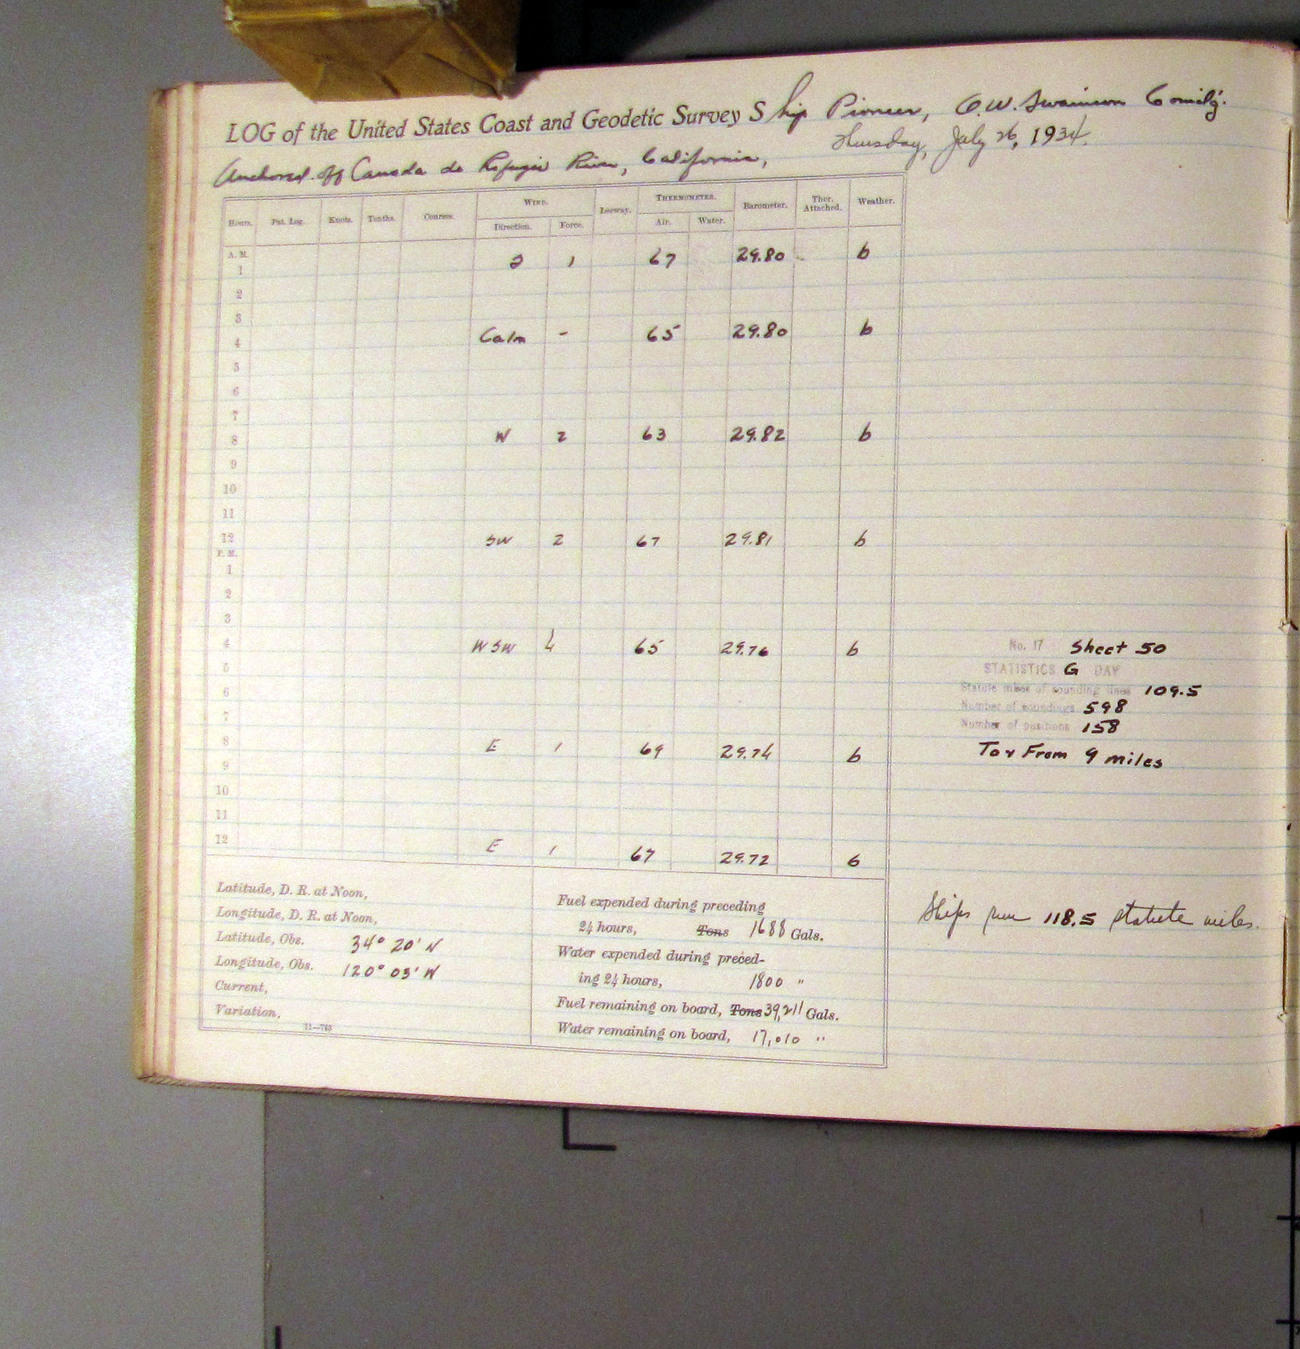 LOG of the United States Coast and Geodetic Survey Ship Pioneer, O.W. Swainson Comd'g.
Thursday, July 26, 1934.
Anchored off Canada de Refugio River, California,
Hours. Pat. Log. Knots. Tenths. Courses. WIND. Leeway. THERMOMETER. Barometer. Ther. Attached. Weather.
Direction. Force. Air. Water.
A. M.
1 1 67 29.80 b
2
3
4 Calm - 65 29.80 b
5
6
7
8 W 2 63 29.82 b
9
10
11
12 SW 2 67 29.81 b
P. M.
1
2
3
4 WSW 4 65 29.76 b
5
6
7
8 E 1 69 29.74 b
9
10
11
12 E 1 67 29.72 b
No. 17 Sheet 50
STATISTICS G DAY
Statute miles of sounding lines 109.5
Number of soundings 598
Number of positions 158
To & From 9 miles
Ships run 118.5 statute miles.
Latitude, D. R. at Noon,
Longitude, D. R. at Noon,
Latitude, Obs. 34° 20' N
Longitude, Obs. 120° 03' W
Current,
Variation,
11—763
Fuel expended during preceding
24 hours, Tons 1688 Gals.
Water expended during preced-
ing 24 hours, 1800 "
Fuel remaining on board, Tons 39,211 Gals.
Water remaining on board, 17,010 "